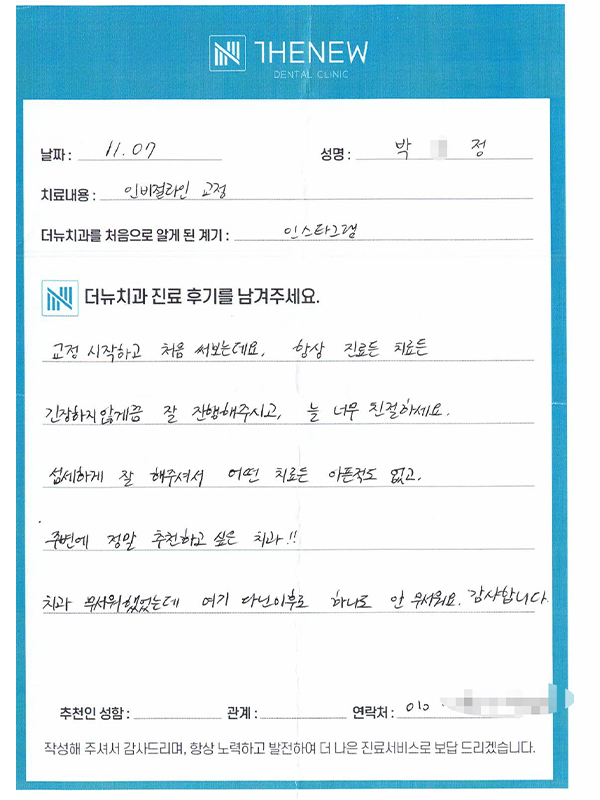 THENEW
DENTAL CLINIC
날짜 : 11.07 성명 : 박 정
치료내용 : 인비절라인 교정
더뉴치과를 처음으로 알게 된 계기 : 인스타그램
더뉴치과 진료 후기를 남겨주세요.
교정 시작하고 처음 써보는데요, 항상 진료든 치료든
긴장하지않게끔 잘 진행해주시고, 늘 너무 친절하세요.
섬세하게 잘 해주셔서 어떤 치료든 아픈적도 없고,
주변에 정말 추천하고 싶은 치과!!
치과 무서워했었는데 여기 다닌이후로 하나도 안 무서워요. 감사합니다.
추천인 성함 : 관계 : 연락처 : 010
작성해 주셔서 감사드리며, 항상 노력하고 발전하여 더 나은 진료서비스로 보답 드리겠습니다.